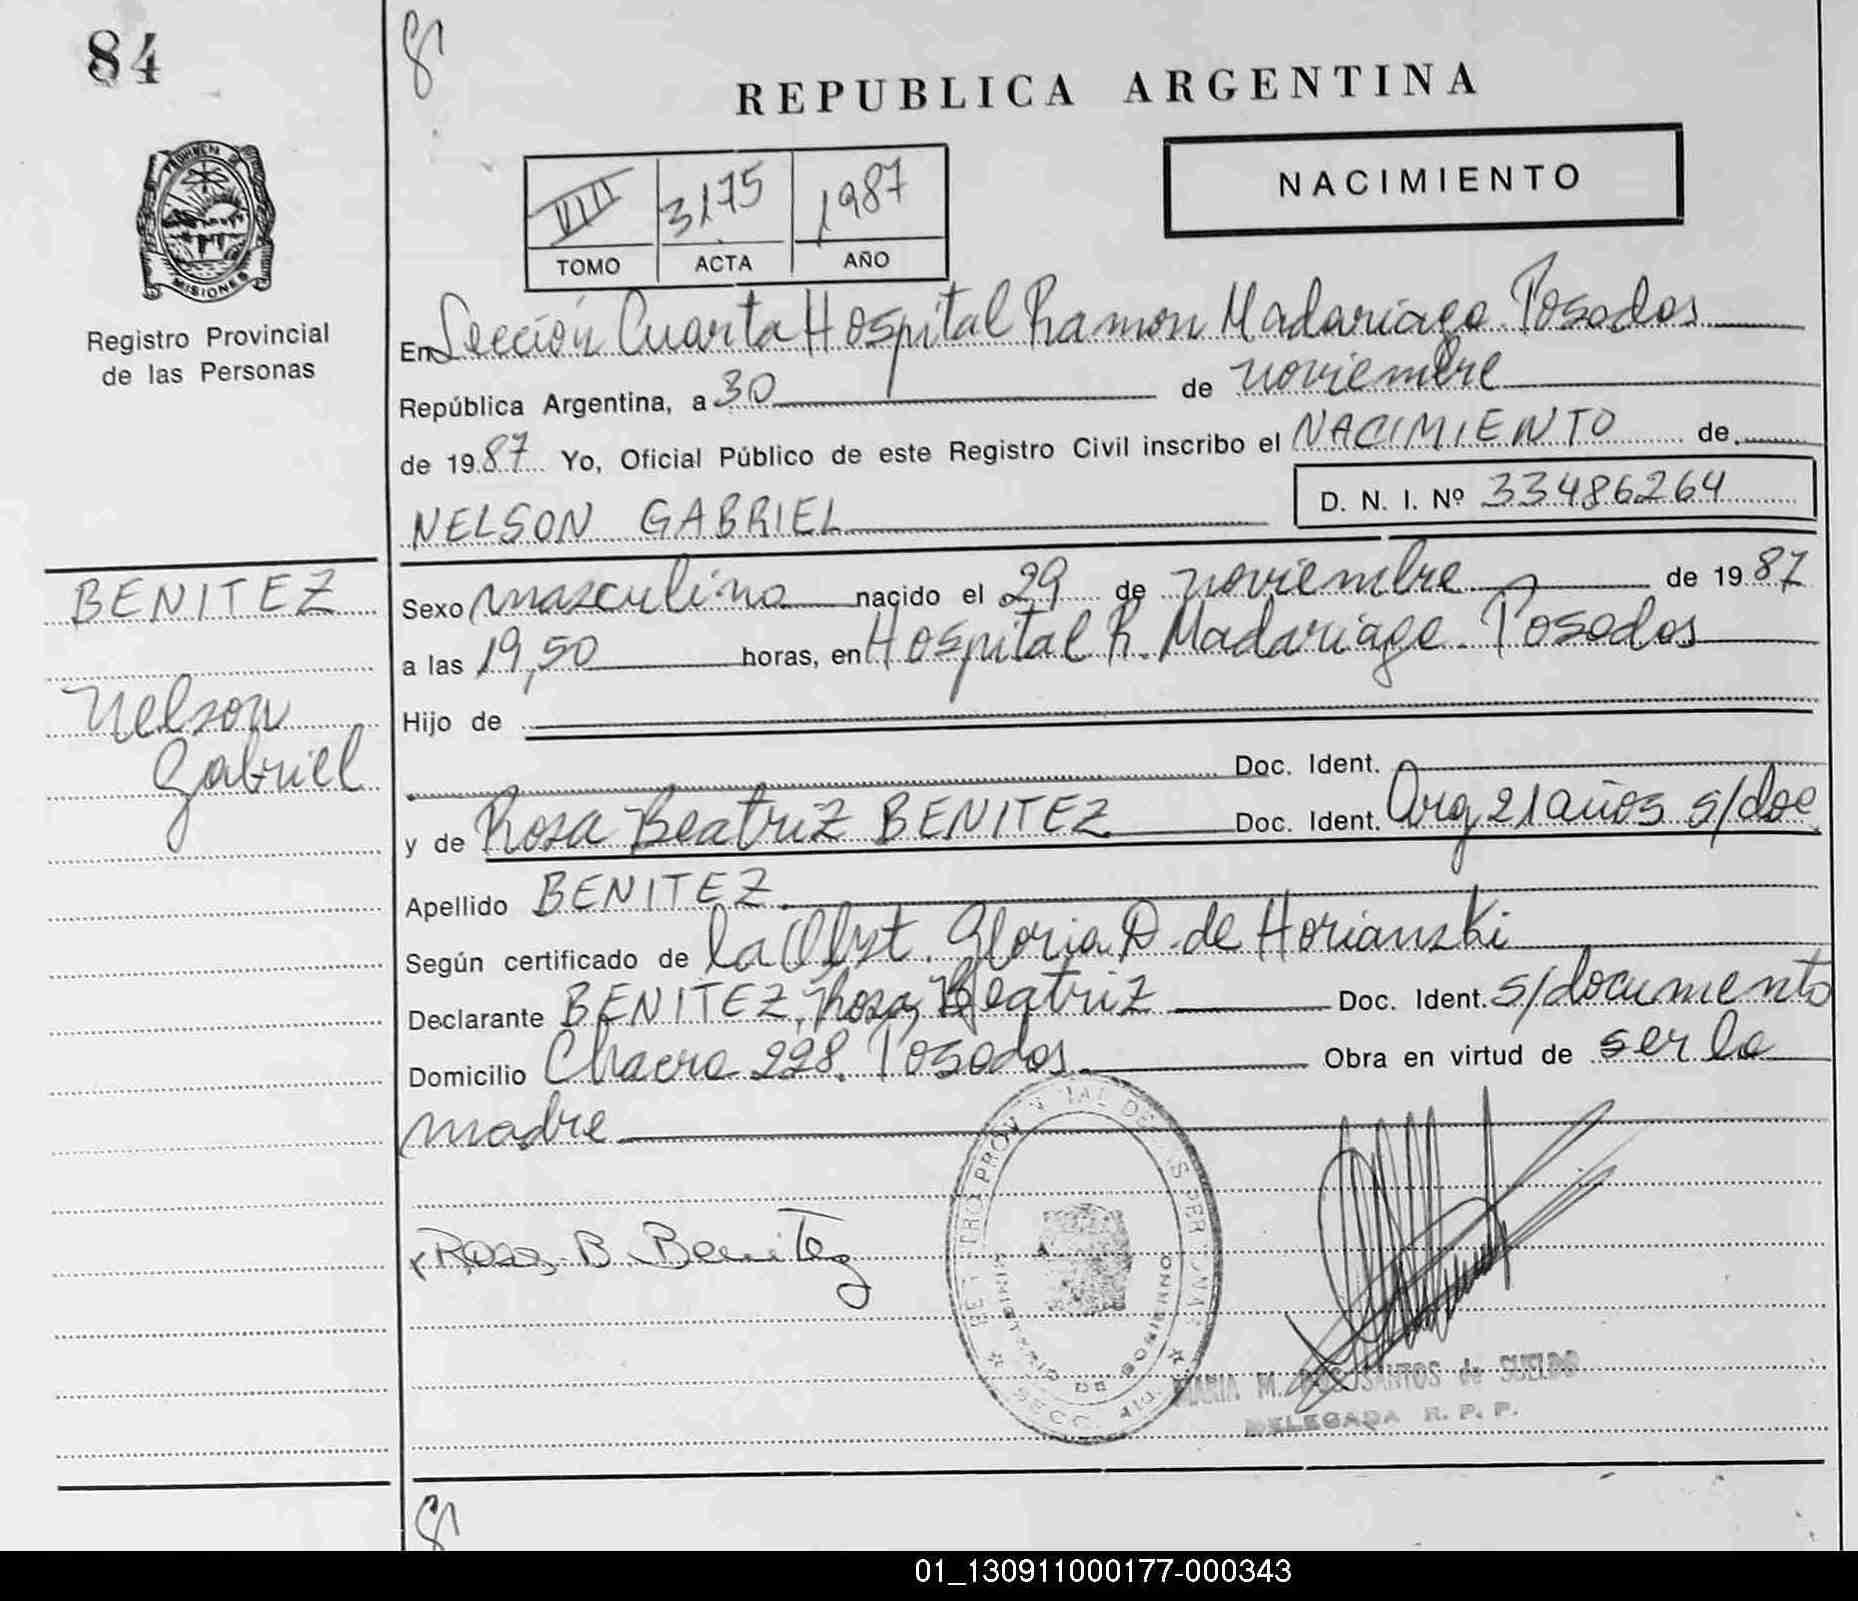 84
REPUBLICA ARGENTINA
NACIMIENTO
VIII 3175 1987
TOMO ACTA AÑO
PROVINCIA DE
MISIONES
Registro Provincial
de las Personas
En Sección Cuarta Hospital Ramon Madariaga. Posadas
República Argentina, a 30 de noviembre
de 1987 Yo, Oficial Público de este Registro Civil inscribo el NACIMIENTO de
NELSON GABRIEL D. N. I. Nº 33486264
BENITEZ
Nelson
Gabriel
Sexo masculino nacido el 29 de noviembre de 1987
a las 19,50 horas, en Hospital R. Madariaga. Posadas
Hijo de
Doc. Ident.
y de Rosa Beatriz BENITEZ Doc. Ident. Arg 21 años s/doc
Apellido BENITEZ
Según certificado de la Obst. Gloria D. de Horianski
Declarante BENITEZ, Rosa Beatriz Doc. Ident. s/documento
Domicilio Chacra 228. Posadas Obra en virtud de ser la
madre
Rosa B. Benitez
REGISTRO PROVINCIAL DE LAS PERSONAS
MINISTERIO DE GOBIERNO
SECC. 4ta.
MARIA M. DOS SANTOS de SUELDO
DELEGADA R. P. P.
01_130911000177-000343